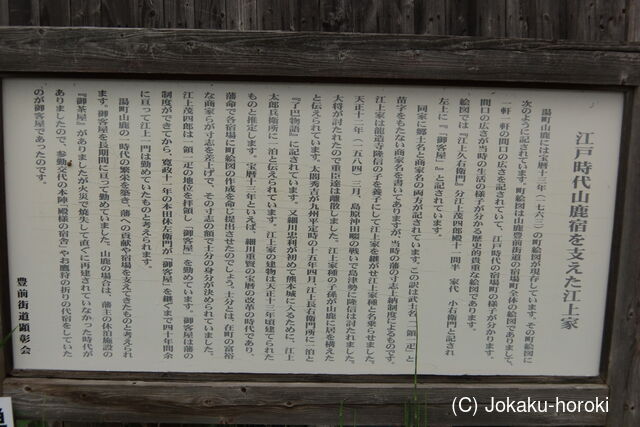 江戸時代山鹿宿を支えた江上家
湯町山鹿には宝暦十三年(一七六三)の町絵図が現存しています。その町絵図に
次のように記されています。町絵図は山鹿豊前街道の宿場町全体の絵図でありまして、
一軒一軒の間口の広さを記されていて、江戸時代の宿場町の様子が分かります。
間口の広さが当時の生活の様子が分かる歴史的貴重な絵図であります。
絵図では『江上久右衛門』分江上茂四郎殿十一間半 家代 小右衛門と記され
左上に『「御客屋」』と記されています。
同家に郷士名と商家名の両方が記されています。この訳は武士名「一領一疋」と
苗字をもたない商家名を書いてありますが、当時の藩の寸志上納制度によるものです。
江上家は龍造寺隆信の子を養子にして江上家を継がせ江上家種と名乗らせました。
天正十二年(一五八四)三月、島原沖田畷の戦いで島津勢に隆信は討たれました。
大将が討たれたので重臣達は離散しました。江上家種の子孫が山鹿に居を構えた
と伝えられています。太閤秀吉が九州平定時の十五年四月、江上長右衛門所に一泊と
『了巴物語』に記されています。又細川忠利が初めて熊本城に入るために、江上
太郎兵衛所に一泊と伝えられています。江上家の建物は天正十二年以降建てられた
ものと推定します。宝暦十三年といえば、細川重賢の宝暦の改革の時代であり、
藩命で各宿場に町絵図の作成を命じ提出させたのでしょう。士分とは、在町の富裕
な商家らが寸志を差上げて、その寸志の額で士分の身分が決められていました。
江上茂四郎は一領一疋の地位を拝領し「御客屋」を勤めています。御客屋は藩の
制度ができてから、寛政十二年の本田休左衛門が「御客屋」を継ぐまで四十年間余
に亘って江上一門は勤めていたものと考えられます。
湯町山鹿の一時代の繁栄を築き、藩への貢献や宿場を支えてきたものと考えられ
ます。御客屋を長期間に亘って勤めていました。山鹿の場合は、藩主の休泊施設の
『御茶屋』がありましたが火災で焼失して直ぐに再建されていなかった時代が
ありましたので、参勤交代の本陣「殿様の宿舎」やお鷹狩の折りの代宿をしていた
のが御客屋であったのです。
豊前街道顕彰会
(C) Jokaku-horoki